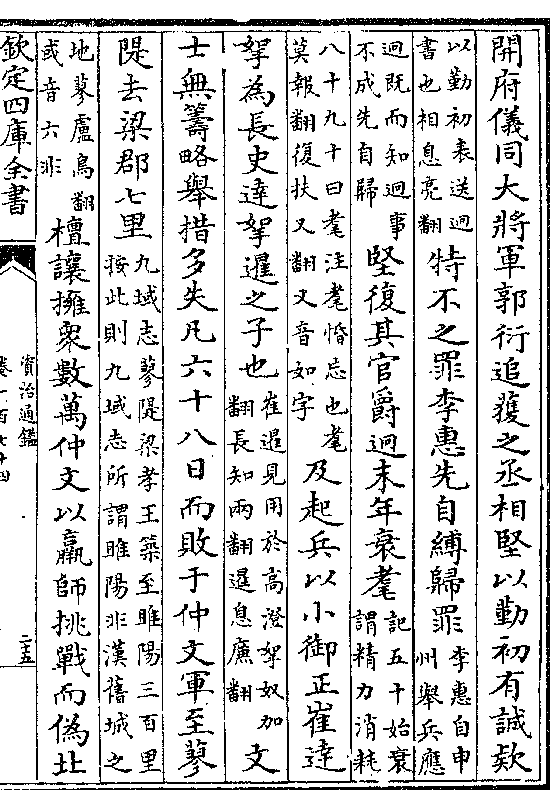 開府儀同大將軍郭衍追獲之丞相堅以勤初有誠欵
以勤初表送迥
書也相息亮翻
特不之罪李惠先自縛歸罪
李惠自申
州舉兵應
迥既而知迥事
不成先自歸
堅復其官爵迥末年衰耄
記五十始衰
謂精力消耗
八十九十曰耄注耄惛忘也耄
莫報翻復扶又翻又音如字
及起兵以小御正崔達
拏為長史達拏暹之子也
崔暹見用於高澄拏奴加
翻長知兩翻暹息廉翻
文
士無籌略舉措多失凡六十八日而敗于仲文軍至蓼
隄去梁郡七里
九域志蓼隄梁孝王築至睢陽三百里
按此則九域志所謂睢陽非漢舊城之
地蓼盧鳥翻
或音六非
檀讓擁衆數萬仲文以羸師挑戰而偽北
欽定四庫全書
資治通鑑
卷一百七十四
二五